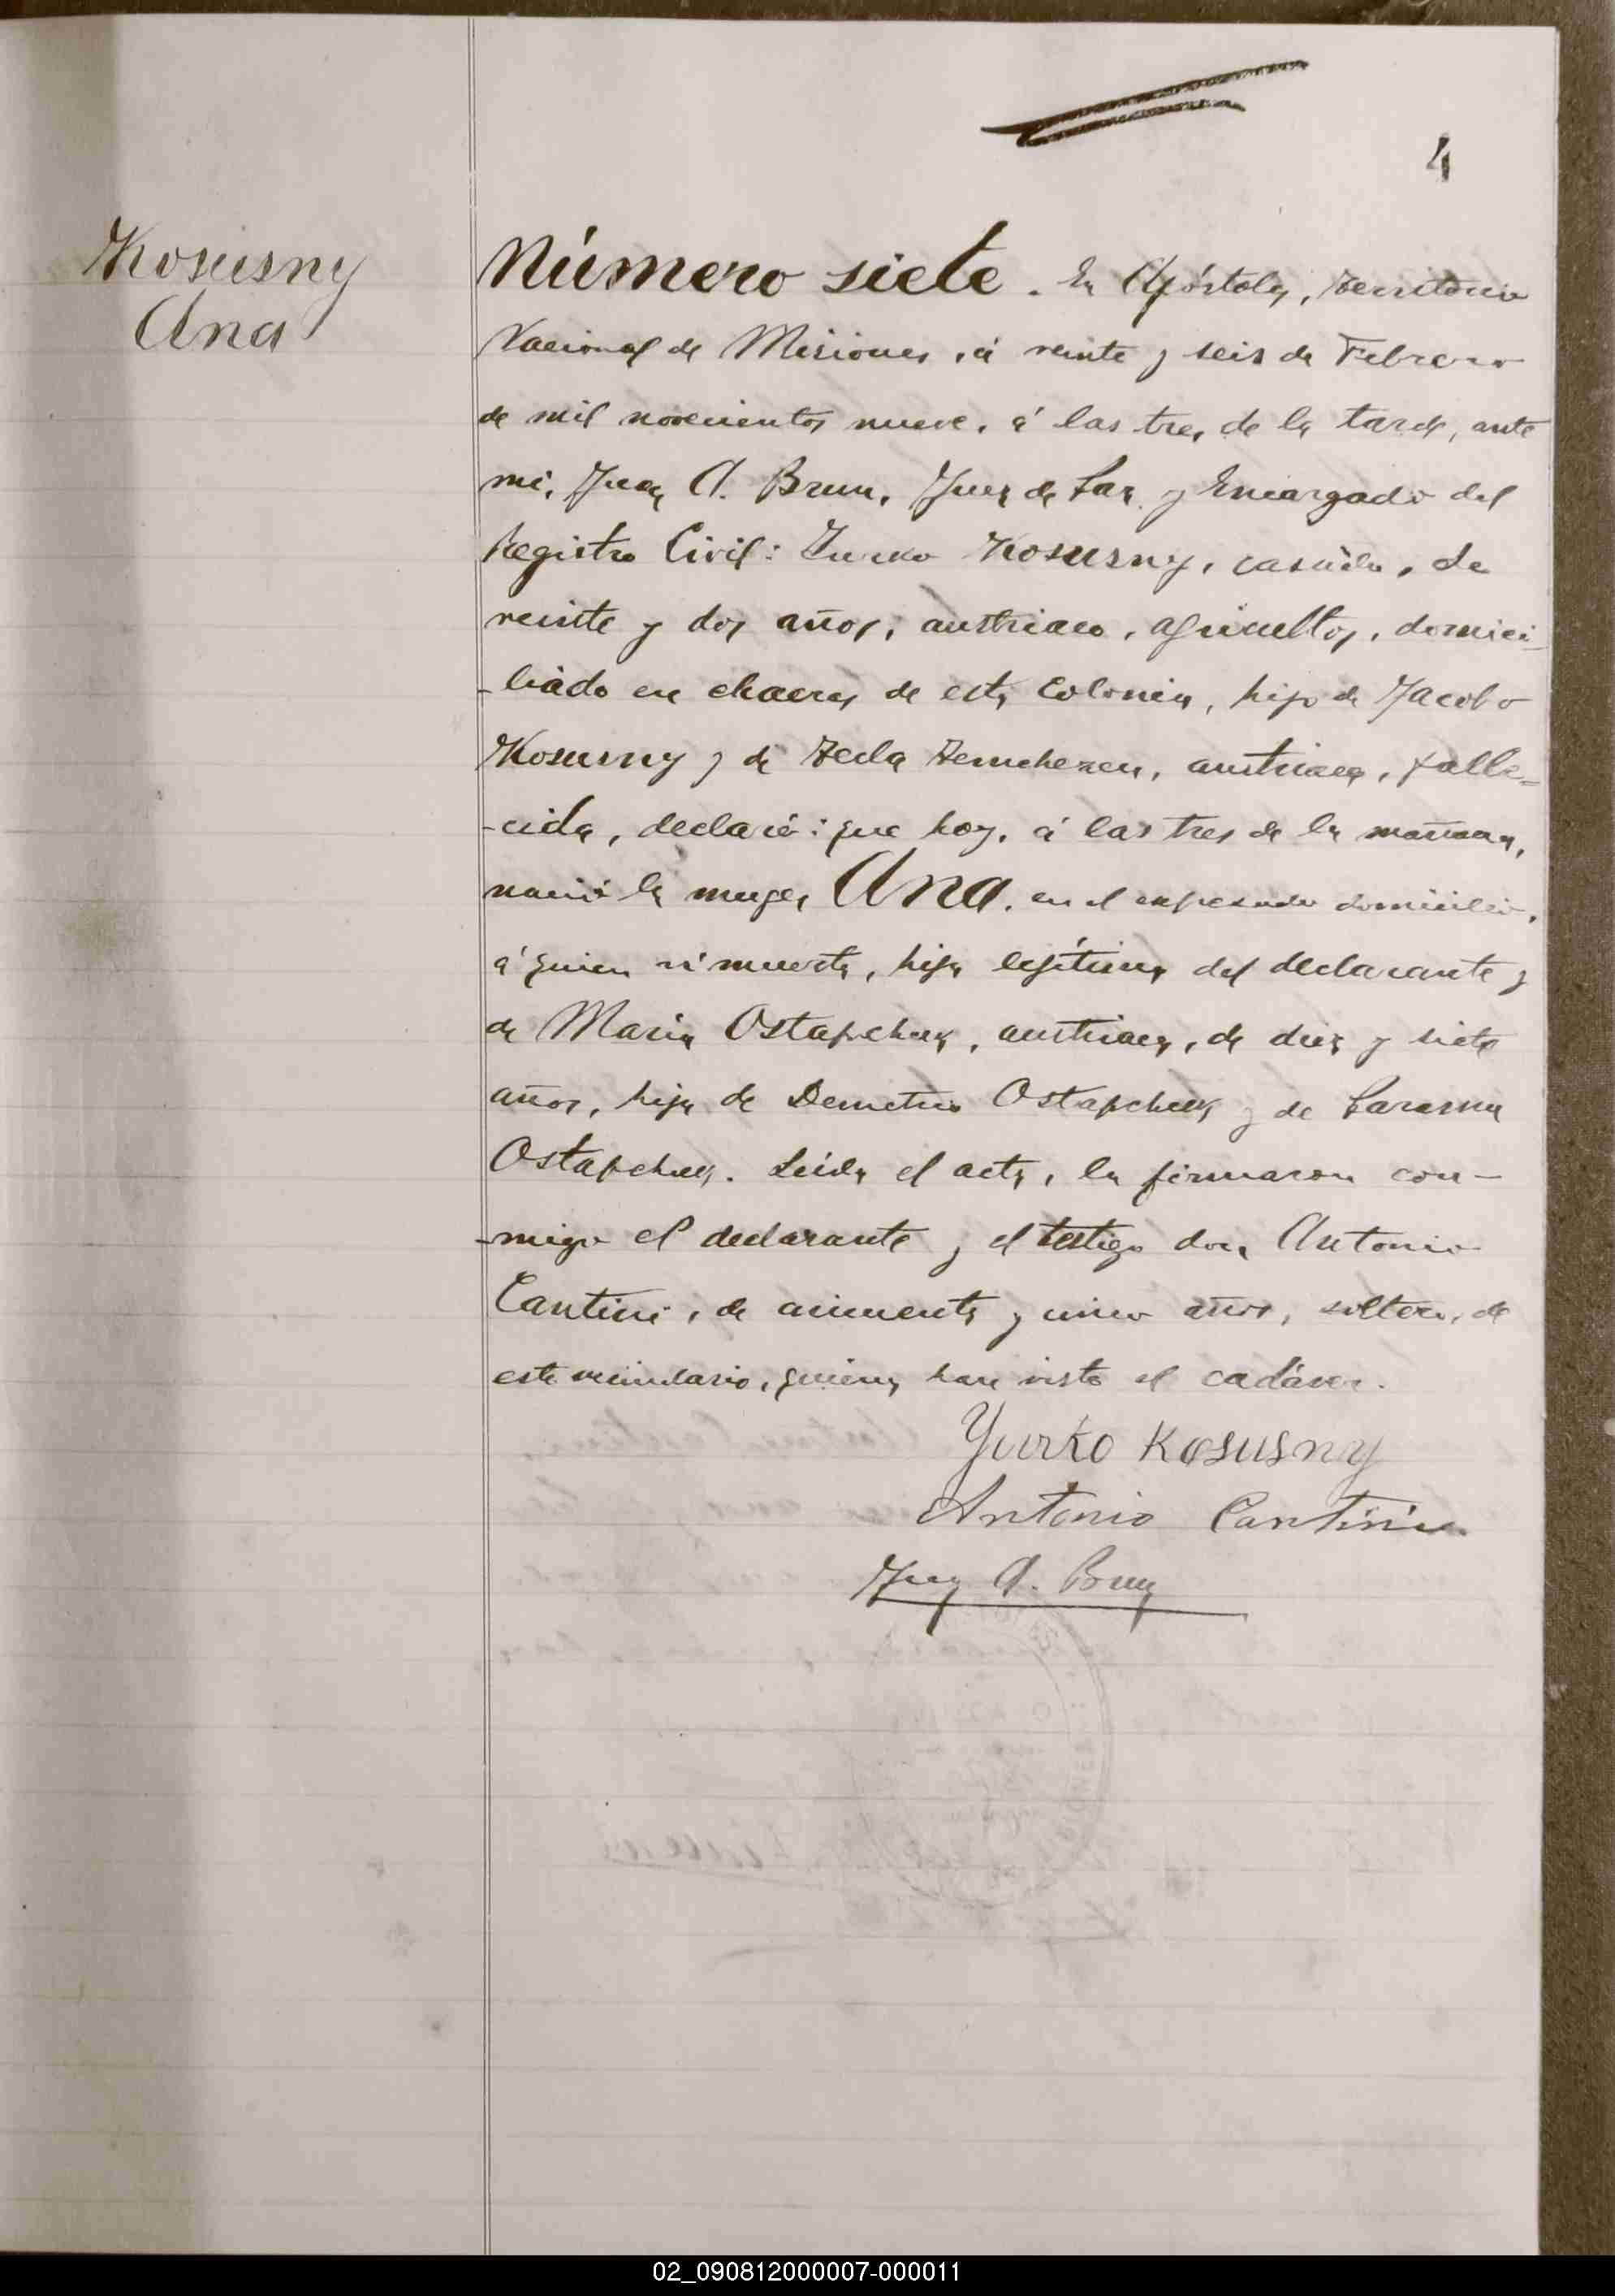 4
Kosusny
Ana
Número siete. En Apóstoles, Territorio
Nacional de Misiones, á veinte y seis de Febrero
de mil novecientos nueve, á las tres de la tarde, ante
mi, Juan A. Brun, Juez de Paz y Encargado del
Registro Civil: Yurko Kosusny, casado, de
veinte y dos años, austriaco, agricultor, domici-
-liado en chacra de esta Colonia, hijo de Jacobo
Kosusny y de Tecla, austriaca, falle-
-cida, declaró: que hoy, á las tres de la mañana,
nació la muger Ana, en el expresado domicilio,
á quien ví muerta, hija legítima del declarante y
de Maria Ostapchuk, austriaca, de diez y siete
años, hija de Demetrio Ostapchuk y de
Ostapchuk. Leida el acta, la firmaron con-
-migo el declarante y el testigo don Antonio
Cantini, de cincuenta y cinco años, soltero, de
este vecindario, quienes han visto el cadáver.
Yurko Kosusny
Antonio Cantini
Juan A. Brun
02_090812000007-000011